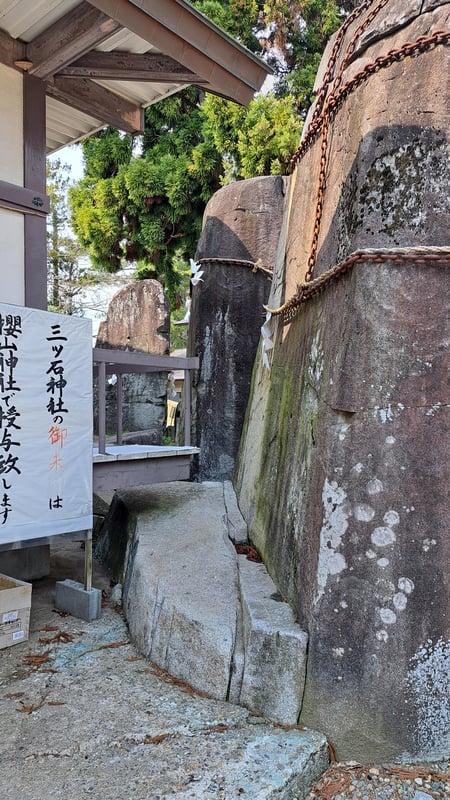 三ツ石神社の御朱 は
櫻山神社で授与致します